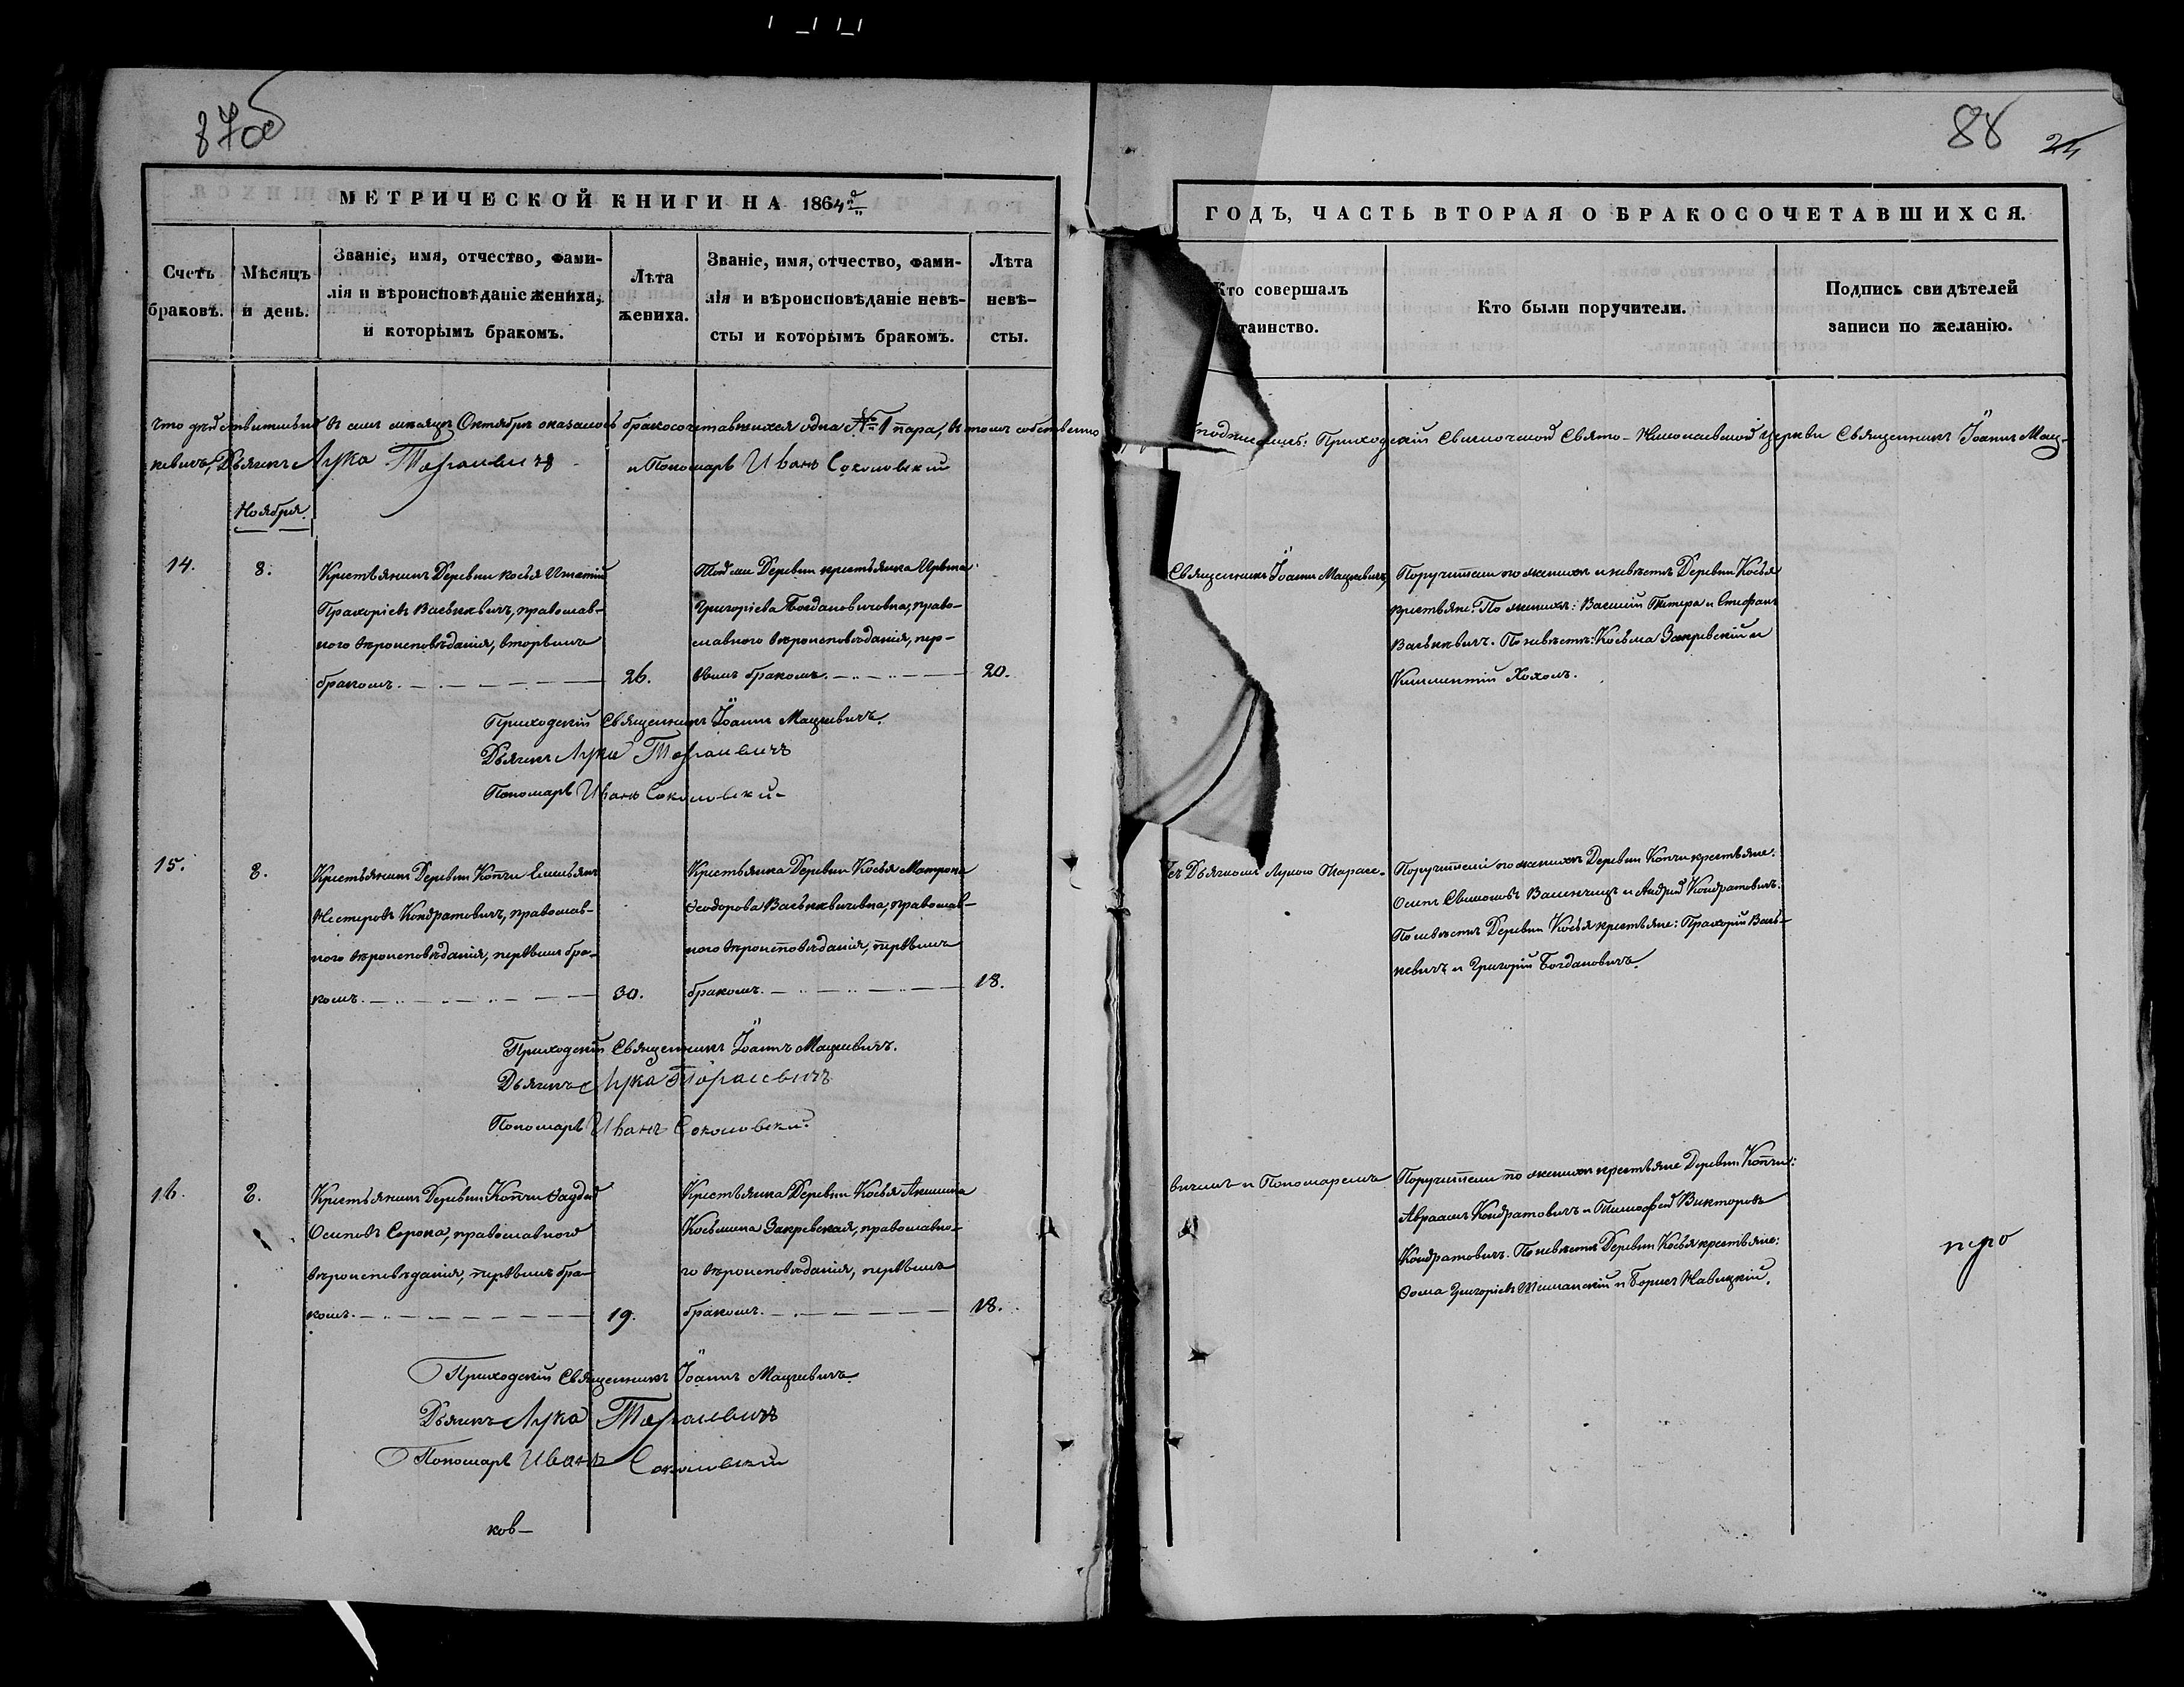 87об
МЕТРИЧЕСКОЙ КНИГИ НА 1864й
Счетъ браковъ.
Мѣсяцъ и день.
Званіе, имя, отчество, фами-
лія и вѣроисповѣданіе жениха,
и которымъ бракомъ.
Лѣта
жениха.
Званіе, имя, отчество, фами-
лія и вѣроисповѣданіе невѣ-
сты и которымъ бракомъ.
Лѣта
невѣ-
сты.
Что дѣйствительно въ семъ мѣсяцѣ Октябрѣ оказалось бракосочетавшихся одна №1 пара, въ томъ собственно
кевичъ, Дьячекъ Лука Тараевичъ и Пономарь Иванъ Соколовскій
Ноября.
14.
8.
Крестьянинъ Деревни Косья Игнатій
Прахоріевъ Васькевичъ, православ-
ного вѣроисповѣданія, вторымъ
бракомъ.
26.
Той же Деревни крестьянка
Григоріева Богдановичовна, право-
славного вѣроисповѣданія, пер-
вымъ бракомъ.
20.
Приходскій Священникъ Іоаннъ Мацкевичъ.
Дьячекъ Лука Тараевичъ
Пономарь Иванъ Соколовскій
15.
8.
Крестьянинъ Деревни Копчи Емельянъ
Нестеровъ Кондратовичъ, православ-
ного вѣроисповѣданія, первымъ бра-
комъ.
30.
Крестьянка Деревни Косья Матрона
Ѳеодорова Васькевичовна, православ-
ного вѣроисповѣданія, первымъ
бракомъ.
18.
Приходскій Священникъ Іоаннъ Мацкевичъ.
Дьячекъ Лука Тараевичъ
Пономарь Иванъ Соколовскій
16.
8.
Крестьянинъ Деревни Копчи Ѳаддей
Осиповъ Сорока, православного
вѣроисповѣданія, первымъ бра-
комъ.
19.
Крестьянка Деревни Косья Акилина
Косьмина Закревская, православно-
го вѣроисповѣданія, первымъ
бракомъ.
18.
Приходскій Священникъ Іоаннъ Мацкевичъ.
Дьячекъ Лука Тараевичъ
Пономарь Иванъ Соколовскій
ков-
88
24
ГОДЪ, ЧАСТЬ ВТОРАЯ О БРАКОСОЧЕТАВШИХСЯ.
Кто совершалъ
таинство.
Кто были поручители.
Подпись свидѣтелей
записи по желанію.
подписомъ: Приходскій Свислочской Свято-Николаевской Церкви Священникъ Іоаннъ Мац-
Священникъ Іоаннъ Мацкевичъ
Поручители по женихѣ и невѣстѣ Деревни Косья
крестьяне: По женихѣ: Василій и Стефанъ
Васькевичъ. По невѣстѣ: Косьма Закревскій и
Климентій Хохолъ.
съ Дьячкомъ Лукою Тарае-
Поручители по женихѣ Деревни Копчи крестьяне:
Осипъ и Андрей Кондратовичъ.
По невѣстѣ Деревни Косья крестьяне: Прахорій Вась-
кевичъ и Григорій Богдановичъ.
вичемъ и Пономаремъ
Поручители по женихѣ крестьяне Деревни Копчи:
Авраамъ Кондратовичъ и Тимофей Викторовъ
Кондратовичъ. По невѣстѣ Деревни Косья крестьяне:
Ѳома Григоріевъ и Борисъ Навицкій.